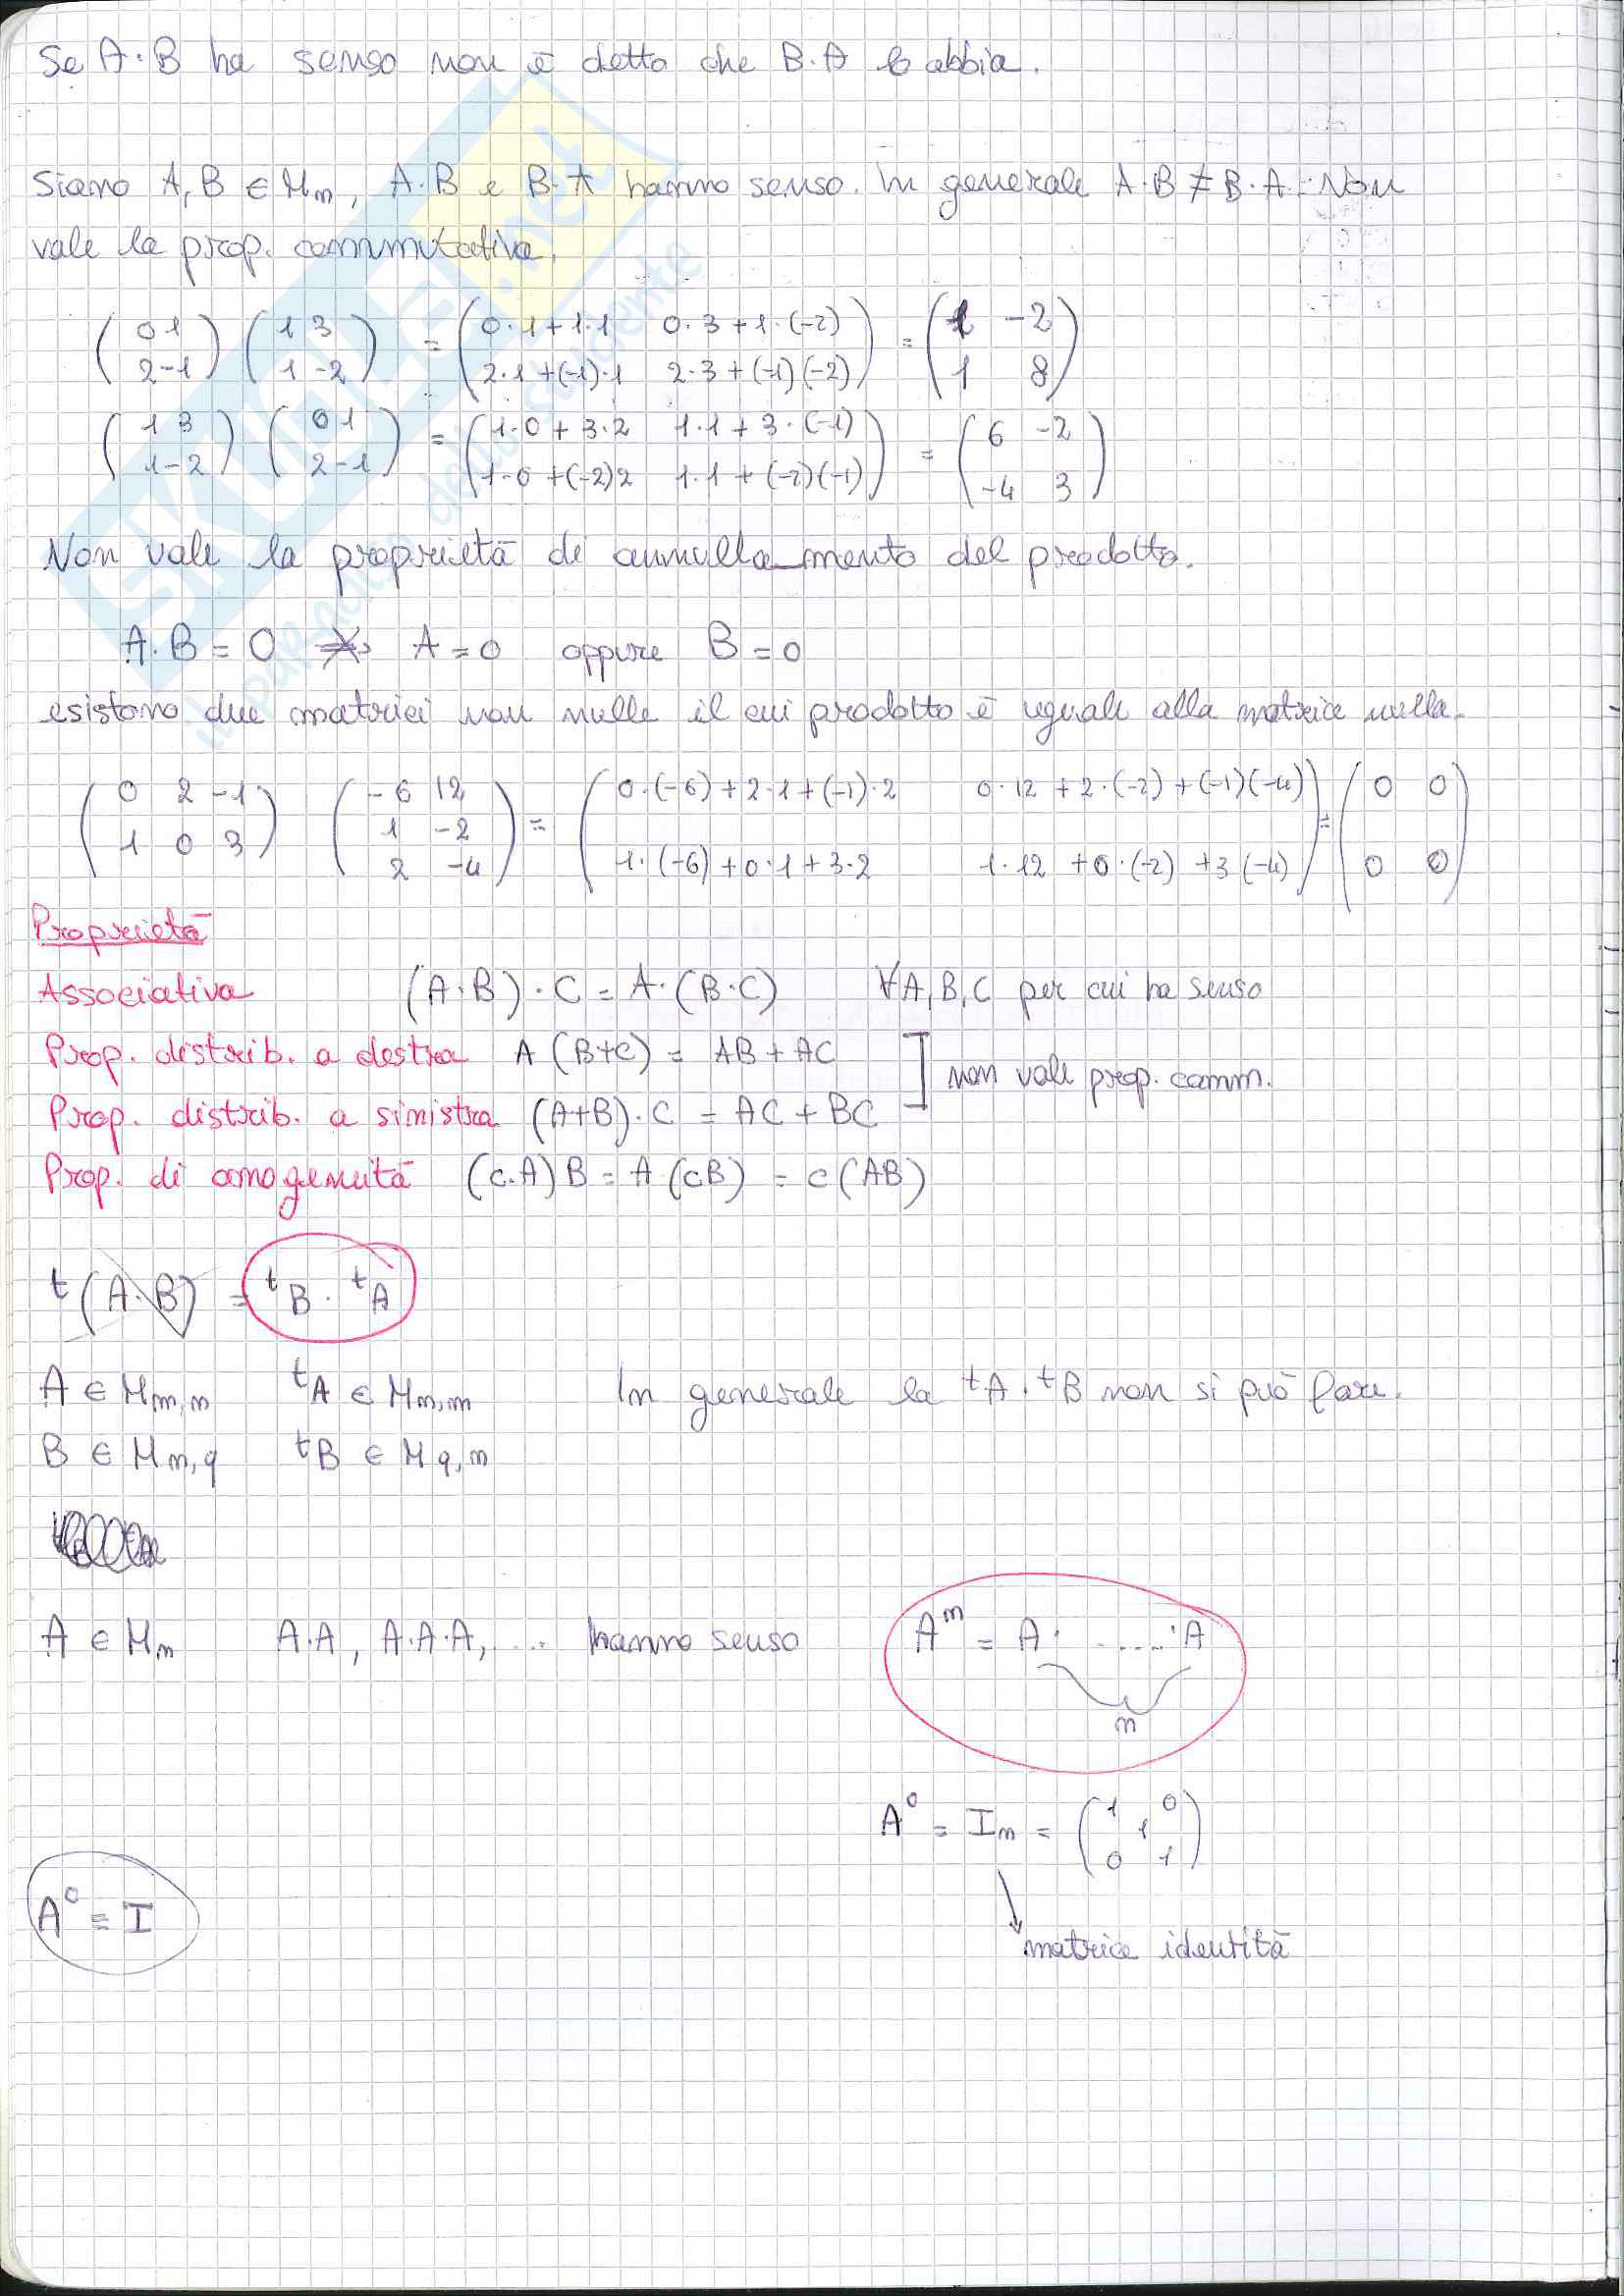 Se A·B ha senso non è detto che B·A lo abbia.
Siano A, B ∈ Mn, A·B e B·A hanno senso. In generale A·B ≠ B·A. Non
vale la prop. commutativa.
(0 1) (1 3) = (0·1+1·1 0·3+1·(-2)) = (1 -2)
(2 -1) (1 -2) (2·1+(-1)·1 2·3+(-1)(-2)) (1 8)
(1 3) (0 1) = (1·0+3·2 1·1+3·(-1)) = (6 -2)
(1 -2) (2 -1) (1·0+(-2)2 1·1+(-2)(-1)) (-4 3)
Non vale la proprietà di annulla_mento del prodotto.
A·B = 0 ⇏ A = 0 oppure B = 0
esistono due matrici non nulle il cui prodotto è uguale alla matrice nulla.
(0 2 -1) (-6 12) = (0·(-6)+2·1+(-1)·2 0·12+2·(-2)+(-1)(-4)) = (0 0)
(1 -2)
(1 0 3) (2 -4) (1·(-6)+0·1+3·2 1·12+0·(-2)+3(-4)) (0 0)
Proprietà
Associativa (A·B)·C = A·(B·C) ∀A,B,C per cui ha senso
Prop. distrib. a destra A(B+C) = AB+AC
non vale prop. comm.
Prop. distrib. a sinistra (A+B)·C = AC+BC
Prop. di omogenuità (c·A)B = A(cB) = c(AB)
t(A·B) = tB·tA
A ∈ Mm,n tA ∈ Mn,m In generale la tA·tB non si può fare.
B ∈ Mn,q tB ∈ Mq,n
A ∈ Mn A·A, A·A·A, ... hanno senso A^m = A·.....·A
n
A^0 = In = (1 0)
1
(0 1)
A^0 = I
matrice identità
SKUOLA.net